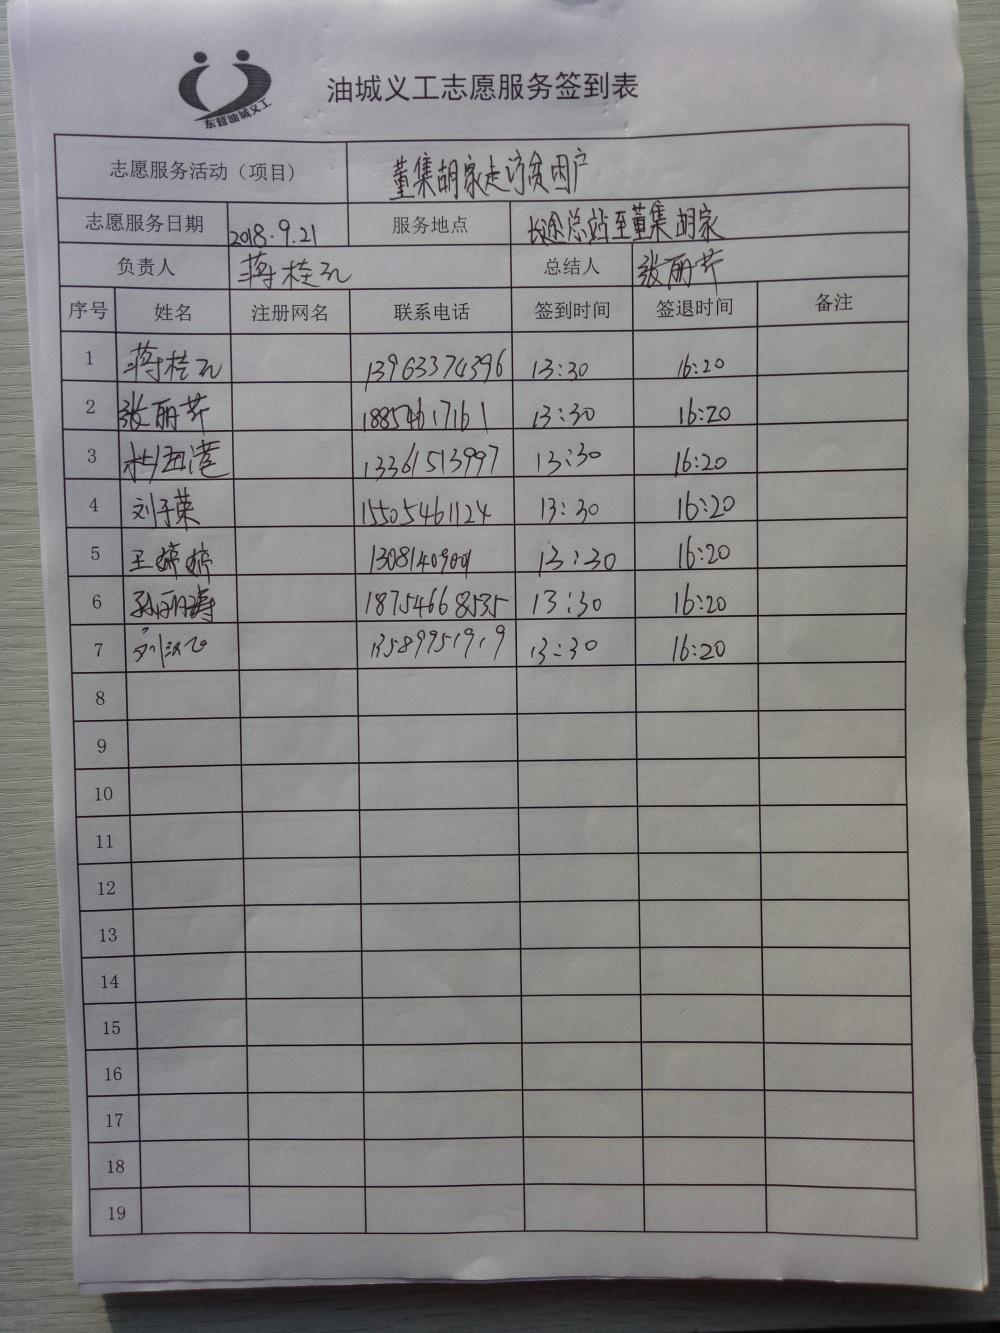 东营油城义工
油城义工志愿服务签到表
志愿服务活动（项目） 董集胡家走访贫困户
志愿服务日期 2018.9.21 服务地点 长途总站至董集胡家
负责人 蒋桂孔 总结人 张丽芹
序号 姓名 注册网名 联系电话 签到时间 签退时间 备注
1 蒋桂孔 13963374396 13:30 16:20
2 张丽芹 18854617161 13:30 16:20
3 13361513997 13:30 16:20
4 刘于荣 15505461124 13:30 16:20
5 王婷婷 13:30 16:20
6 孙丽涛 18754668535 13:30 16:20
7 13589951919 13:30 16:20
8
9
10
11
12
13
14
15
16
17
18
19